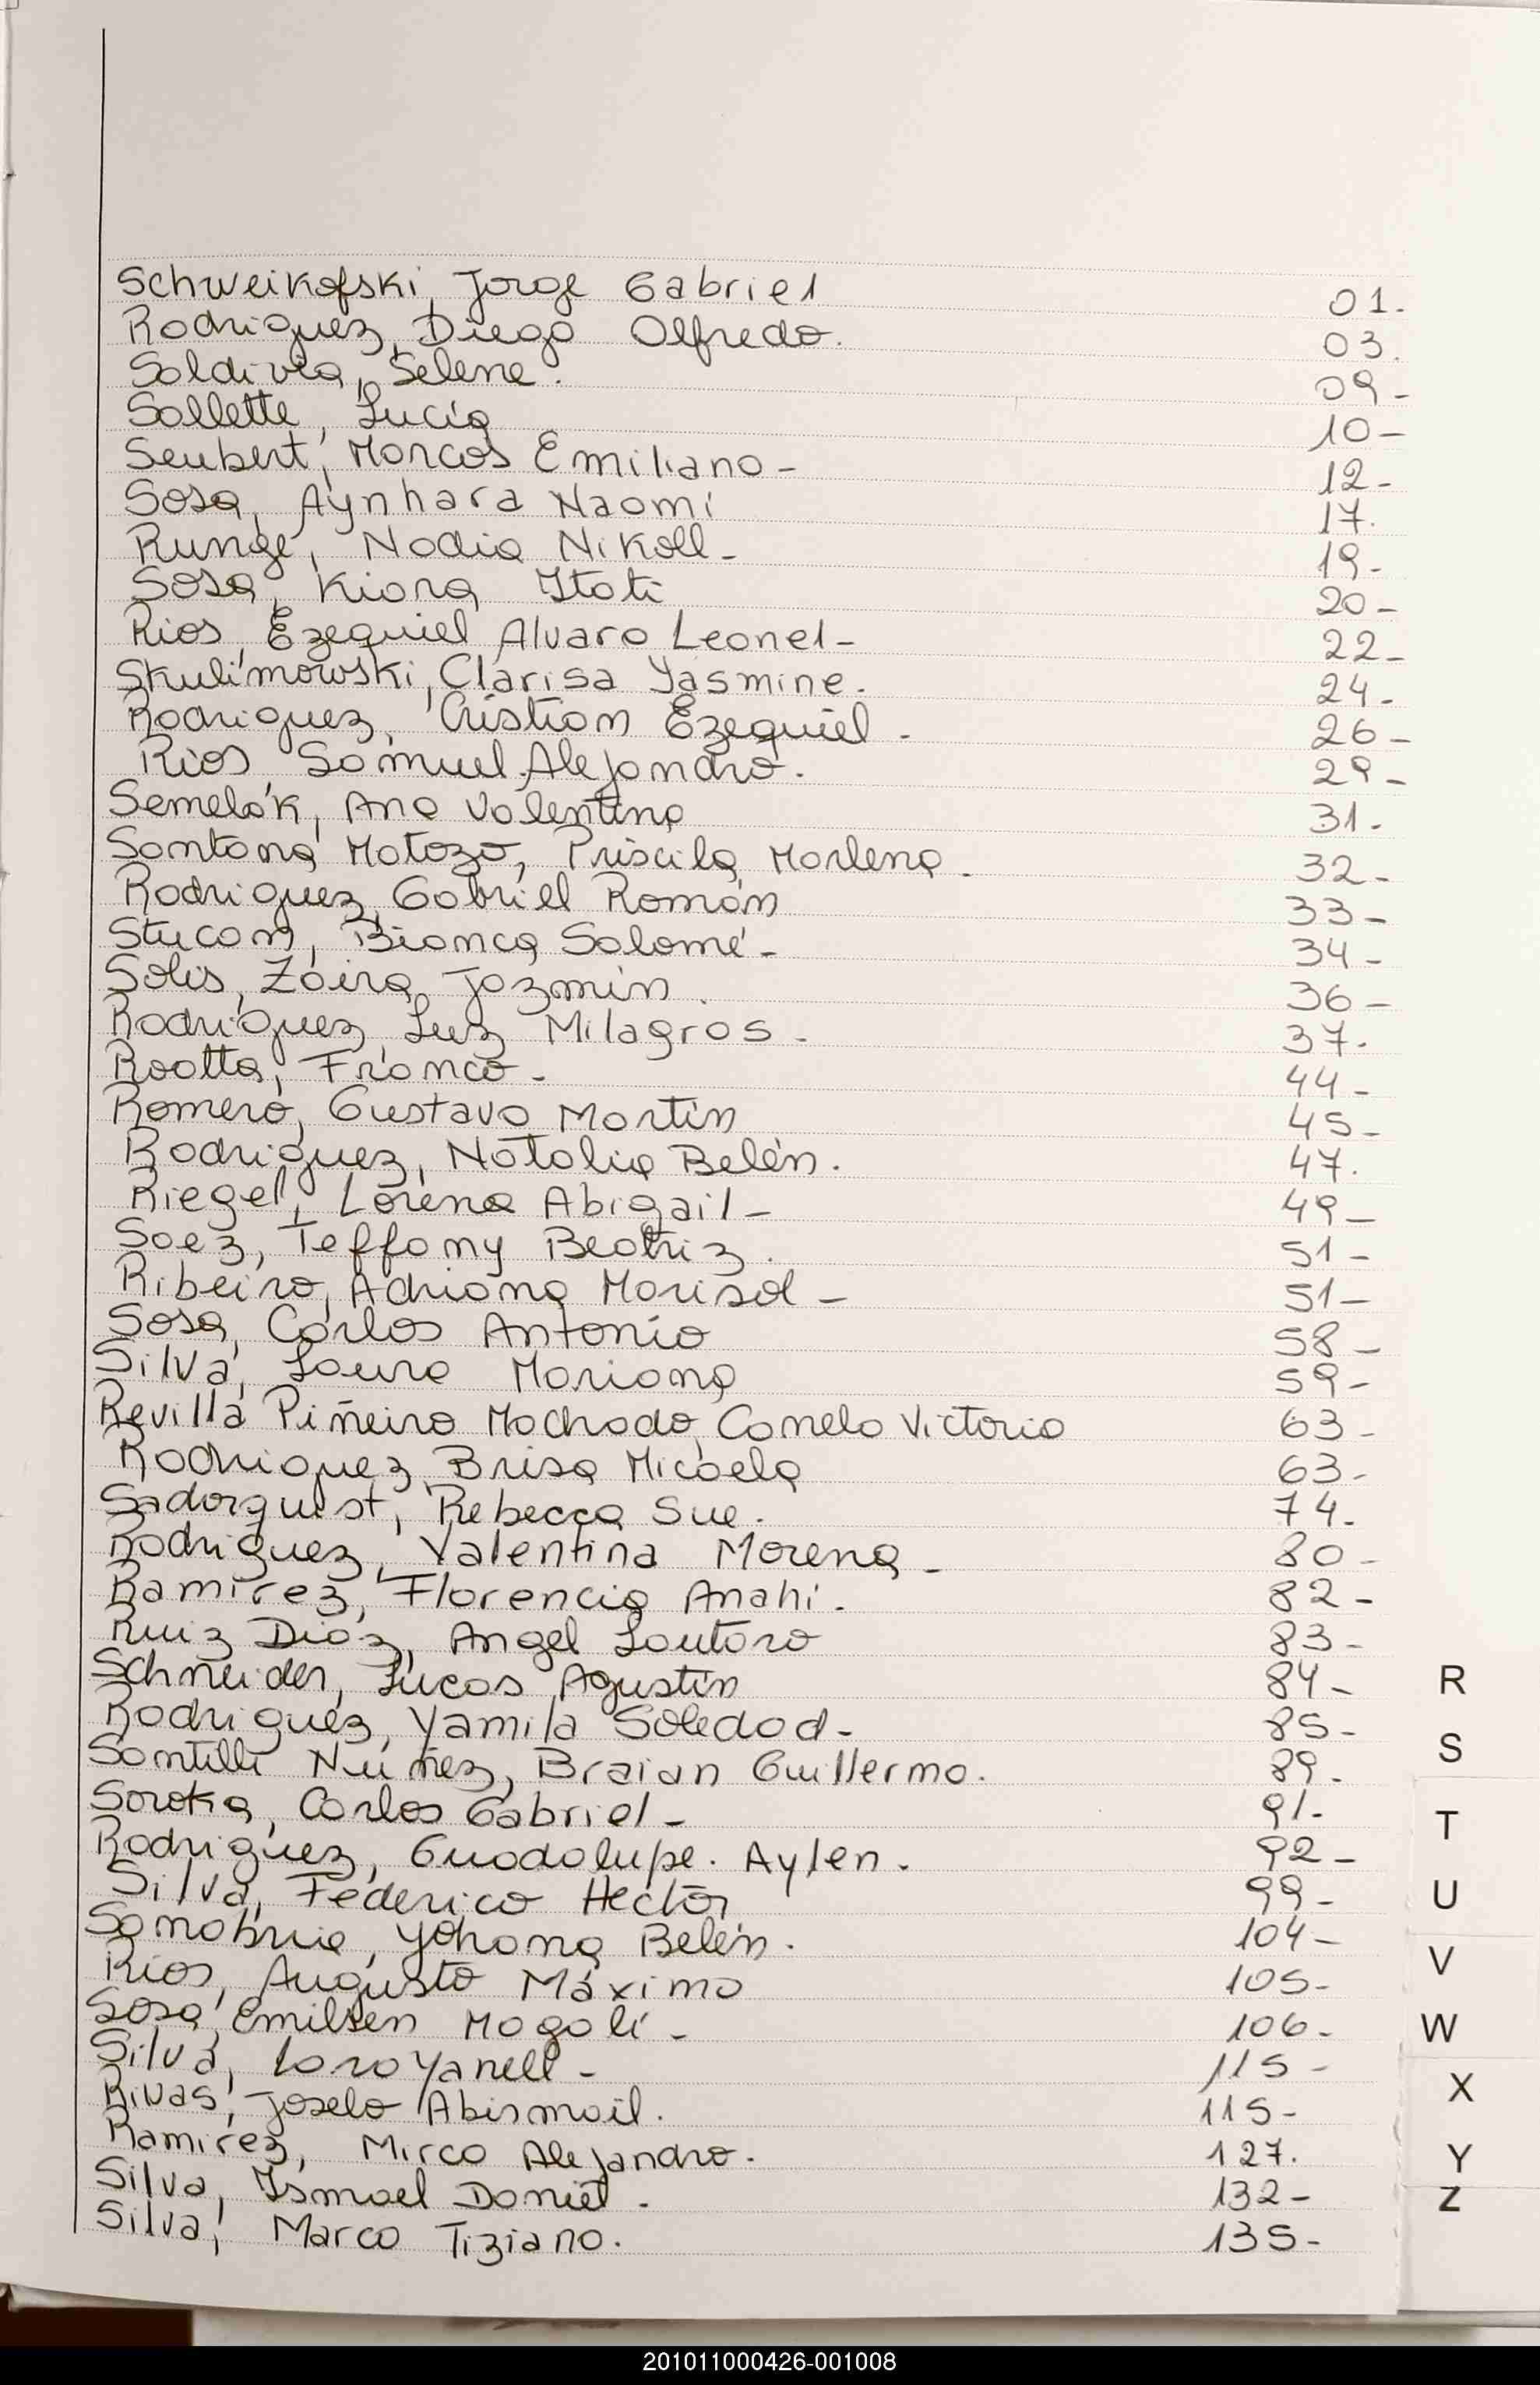 Schweikofski, Jorge Gabriel 01.
Rodriguez, Diego Alfredo. 03.
Saldivia, Selene. 09-
Sallette, Lucia 10-
Seubert, Marcos Emiliano- 12-
Sosa, Aynhara Naomi 17.
Runge, Nadia Nikoll- 19-
Sosa, Kiara Itati 20-
Rios, Ezequiel Alvaro Leonel- 22-
Skulimowski, Clarisa Yasmine. 24-
Rodriguez, Cristian Ezequiel- 26-
Rios Samuel Alejandro. 29-
Semelak, Ana Valentina 31-
Santana Matozo, Priscila Marlena- 32-
Rodriguez, Gabriel Román 33-
Stucan, Bianca Salomé- 34-
Solis, Zaira Jazmin. 36-
Rodriguez, Luz Milagros- 37-
Raatta, Franco- 44-
Romero, Gustavo Martin 45-
Rodriguez, Natalia Belén. 47.
Riegel, Lorena Abigail- 49-
Saez, Teffany Beatriz. 51-
Ribeiro, Adriana Marisol- 51-
Sosa, Carlos Antonio 58-
Silva, Laura Mariana 59-
Revilla Piñeiro Machado, Camela Victoria 63-
Rodriguez, Brisa Micaela 63-
Sadorquist, Rebecca Sue. 74.
Rodriguez, Valentina Morena- 80-
Ramirez, Florencia Anahi. 82-
Ruiz Diaz, Angel Lautaro 83-
Schneider, Lucas Agustin 84-
R
Rodriguez, Yamila Soledad- 85-
S
Santilli Nuñez, Braian Guillermo. 89.
Soroka, Carlos Gabriel- 91-
T
Rodriguez, Guadalupe. Aylen. 92-
Silva, Federico Hector 99-
U
Yohana Belén. 104-
Rios, Augusto Máximo 105-
V
Sosa, Emilsen Magali- 106-
W
Silva, Lara Yanell- 115-
X
Rivas, Joselo Abismail. 115-
Ramirez, Mirco Alejandro. 127.
Y
Silva, Ismael Daniel. 132-
Z
Silva, Marco Tiziano. 135-
201011000426-001008